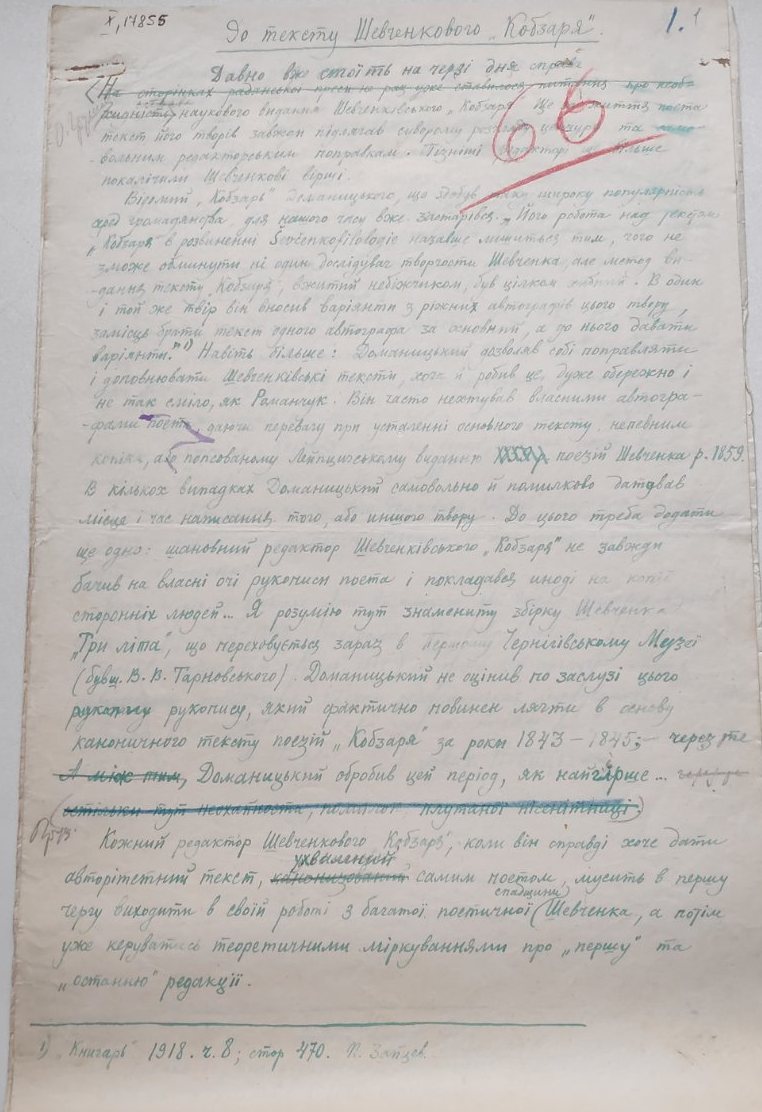 X, 17855
1. 1
До тексту Шевченкового „Кобзаря".
Давно вже стоїть на черзі дня справа
(На сторінках радянської преси не раз уже ставилося питання про необ-
хідність) наукового видання Шевченківського „Кобзаря". Ще за життя поета
текст його творів завжди підлягав суворому розгляду цензури та само-
-вольним редакторським поправкам. Пізніші редактори ще більше
покалічили Шевченкові вірші.
66
Відомий „Кобзарь" Доманицького, що здобув таку широку популярність
серед громадянства, для нашого часу вже застарівся. „Його робота над текстом
„Кобзаря" в розвиненні Ševčenkofilologie назавше лишиться тим, чого не
зможе обминути ні один дослідувач творчости Шевченка, але метод ви-
-дання тексту Кобзаря, вжитий небіжчиком, був цілком хибний. В один
і той же твір він вносив варіянти з ріжних автографів цього твору,
замісць брати текст одного автографа за основний, а до нього давати
варіянти." 1) Навіть більше: Доманицький дозволяв собі поправляти
і доповнювати Шевченківські тексти, хоча й робив це дуже обережно і
не так сміло, як Романчук. Він часто нехтував власними автогра-
-фами поета, даючи перевагу при усталенні основного тексту непевним
копіям, або попсованому Лейпцигському виданню поезій Шевченка р. 1859.
В кількох випадках Доманицький самовольно й помилково датував
місце і час написання того, або иншого твору. До цього треба додати
ще одно: шановний редактор Шевченківського „Кобзаря" не завжди
бачив на власні очі рукописи поета і покладався иноді на копії
сторонніх людей... Я розумію тут знамениту збірку Шевченка
„Три літа", що переховується зараз в Першому Чернігівському Музеї
(бувш. В. В. Тарновського). Доманицький не оцінив по заслузі цього
рукопису рукопису, який фактично повинен лягти в основу
каноничного тексту поезій „Кобзаря" за роки 1843 – 1845; – через те
А між тим, Доманицький обробив цей період, як найгірше...
остільки тут неохайности, помилок, плутаної
Кожний редактор Шевченкового „Кобзаря", коли він справді хоче дати
ухвалений
авторітетний текст, канонизований самим поетом, мусить в першу
спадщини
чергу виходити в своїй роботі з багатої поетичної (Шевченка, а потім
уже керуватись теоретичними міркуваннями про „першу" та
„останню" редакції.
1) „Книгарь" 1918. ч. 8; стор 470. П. Зайцев.